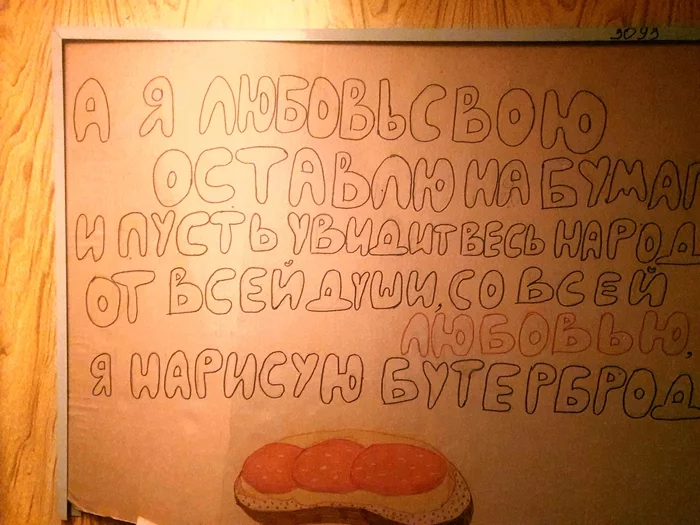 А Я ЛЮБОВЬ СВОЮ
ОСТАВЛЮ НА БУМАГ
И ПУСТЬ УВИДИТ ВЕСЬ НАРОД
ОТ ВСЕЙ ДУШИ, СО ВСЕЙ
ЛЮБОВЬЮ,
Я НАРИСУЮ БУТЕРБРОД